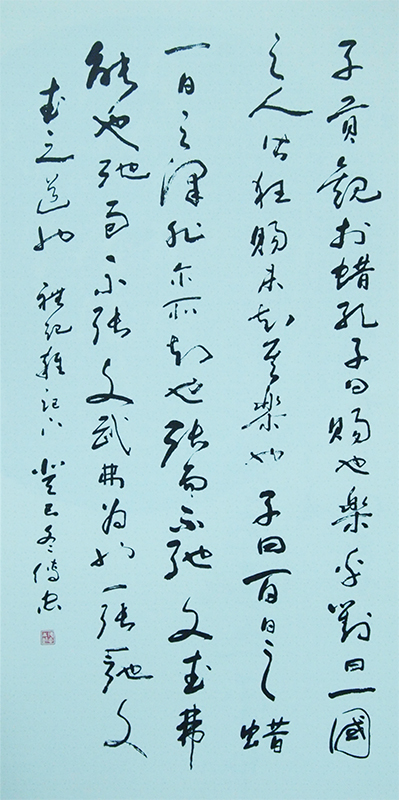 子貢觀於蜡孔子曰賜也樂乎對曰一國
之人狂賜未知其樂也子曰百日之蜡
一日之澤非尔所知也張而不弛文武弗
能也弛而不張文武弗為也一張一弛文
武之道也 禮記雜記下 癸巳冬傳忠